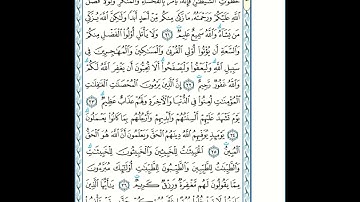 خُطُوَٰتِ ٱلشَّيْطَٰنِ فَإِنَّهُۥ يَأْمُرُ بِٱلْفَحْشَآءِ وَٱلْمُنكَرِ وَلَوْلَا فَضْلُ
ٱللَّهِ عَلَيْكُمْ وَرَحْمَتُهُۥ مَا زَكَىٰ مِنكُم مِّنْ أَحَدٍ أَبَدًا وَلَٰكِنَّ ٱللَّهَ يُزَكِّى
مَن يَشَآءُ وَٱللَّهُ سَمِيعٌ عَلِيمٌ ﴿٢١﴾ وَلَا يَأْتَلِ أُو۟لُوا۟ ٱلْفَضْلِ مِنكُمْ
وَٱلسَّعَةِ أَن يُؤْتُوٓا۟ أُو۟لِى ٱلْقُرْبَىٰ وَٱلْمَسَٰكِينَ وَٱلْمُهَٰجِرِينَ فِى
سَبِيلِ ٱللَّهِ وَلْيَعْفُوا۟ وَلْيَصْفَحُوٓا۟ أَلَا تُحِبُّونَ أَن يَغْفِرَ ٱللَّهُ لَكُمْ
وَٱللَّهُ غَفُورٌ رَّحِيمٌ ﴿٢٢﴾ إِنَّ ٱلَّذِينَ يَرْمُونَ ٱلْمُحْصَنَٰتِ ٱلْغَٰفِلَٰتِ
ٱلْمُؤْمِنَٰتِ لُعِنُوا۟ فِى ٱلدُّنْيَا وَٱلْءَاخِرَةِ وَلَهُمْ عَذَابٌ عَظِيمٌ ﴿٢٣﴾
يَوْمَ تَشْهَدُ عَلَيْهِمْ أَلْسِنَتُهُمْ وَأَيْدِيهِمْ وَأَرْجُلُهُم بِمَا كَانُوا۟ يَعْمَلُونَ
﴿٢٤﴾ يَوْمَئِذٍ يُوَفِّيهِمُ ٱللَّهُ دِينَهُمُ ٱلْحَقَّ وَيَعْلَمُونَ أَنَّ ٱللَّهَ هُوَ ٱلْحَقُّ
ٱلْمُبِينُ ﴿٢٥﴾ ٱلْخَبِيثَٰتُ لِلْخَبِيثِينَ وَٱلْخَبِيثُونَ لِلْخَبِيثَٰتِ
وَٱلطَّيِّبَٰتُ لِلطَّيِّبِينَ وَٱلطَّيِّبُونَ لِلطَّيِّبَٰتِ أُو۟لَٰٓئِكَ مُبَرَّءُونَ
مِمَّا يَقُولُونَ لَهُم مَّغْفِرَةٌ وَرِزْقٌ كَرِيمٌ ﴿٢٦﴾ يَٰٓأَيُّهَا ٱلَّذِينَ